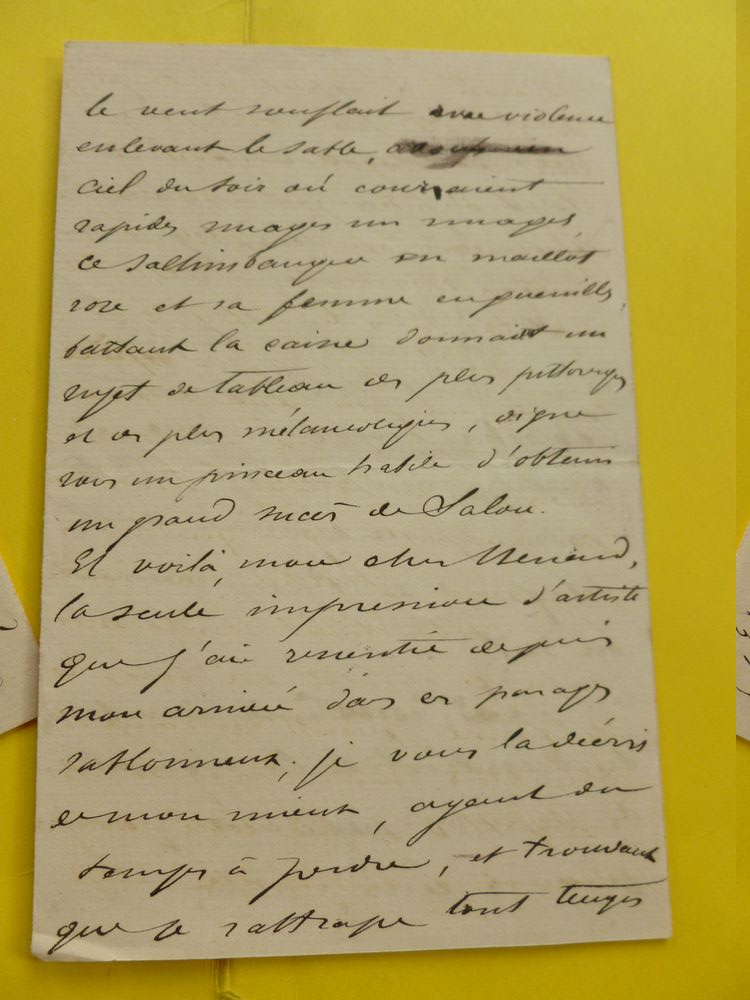 le vent soufflait avec violence
enlevant le sable,
ciel du soir où couraient
rapides nuages sur nuages,
ce saltimbanque en maillot
rose et sa femme en guenilles,
battant la caisse donnait un
sujet de tableau des plus pittoresques
et des plus mélancoliques, digne
sous un pinceau habile d'obtenir
un grand succès de Salon.
Et voilà, mon cher Menard,
la seule impression d'artiste
que j'aie ressentie depuis
mon arrivée dans ces parages
sablonneux, je vous la décris
de mon mieux, ayant du
temps à perdre, et trouvant
que je rattrape tout temps